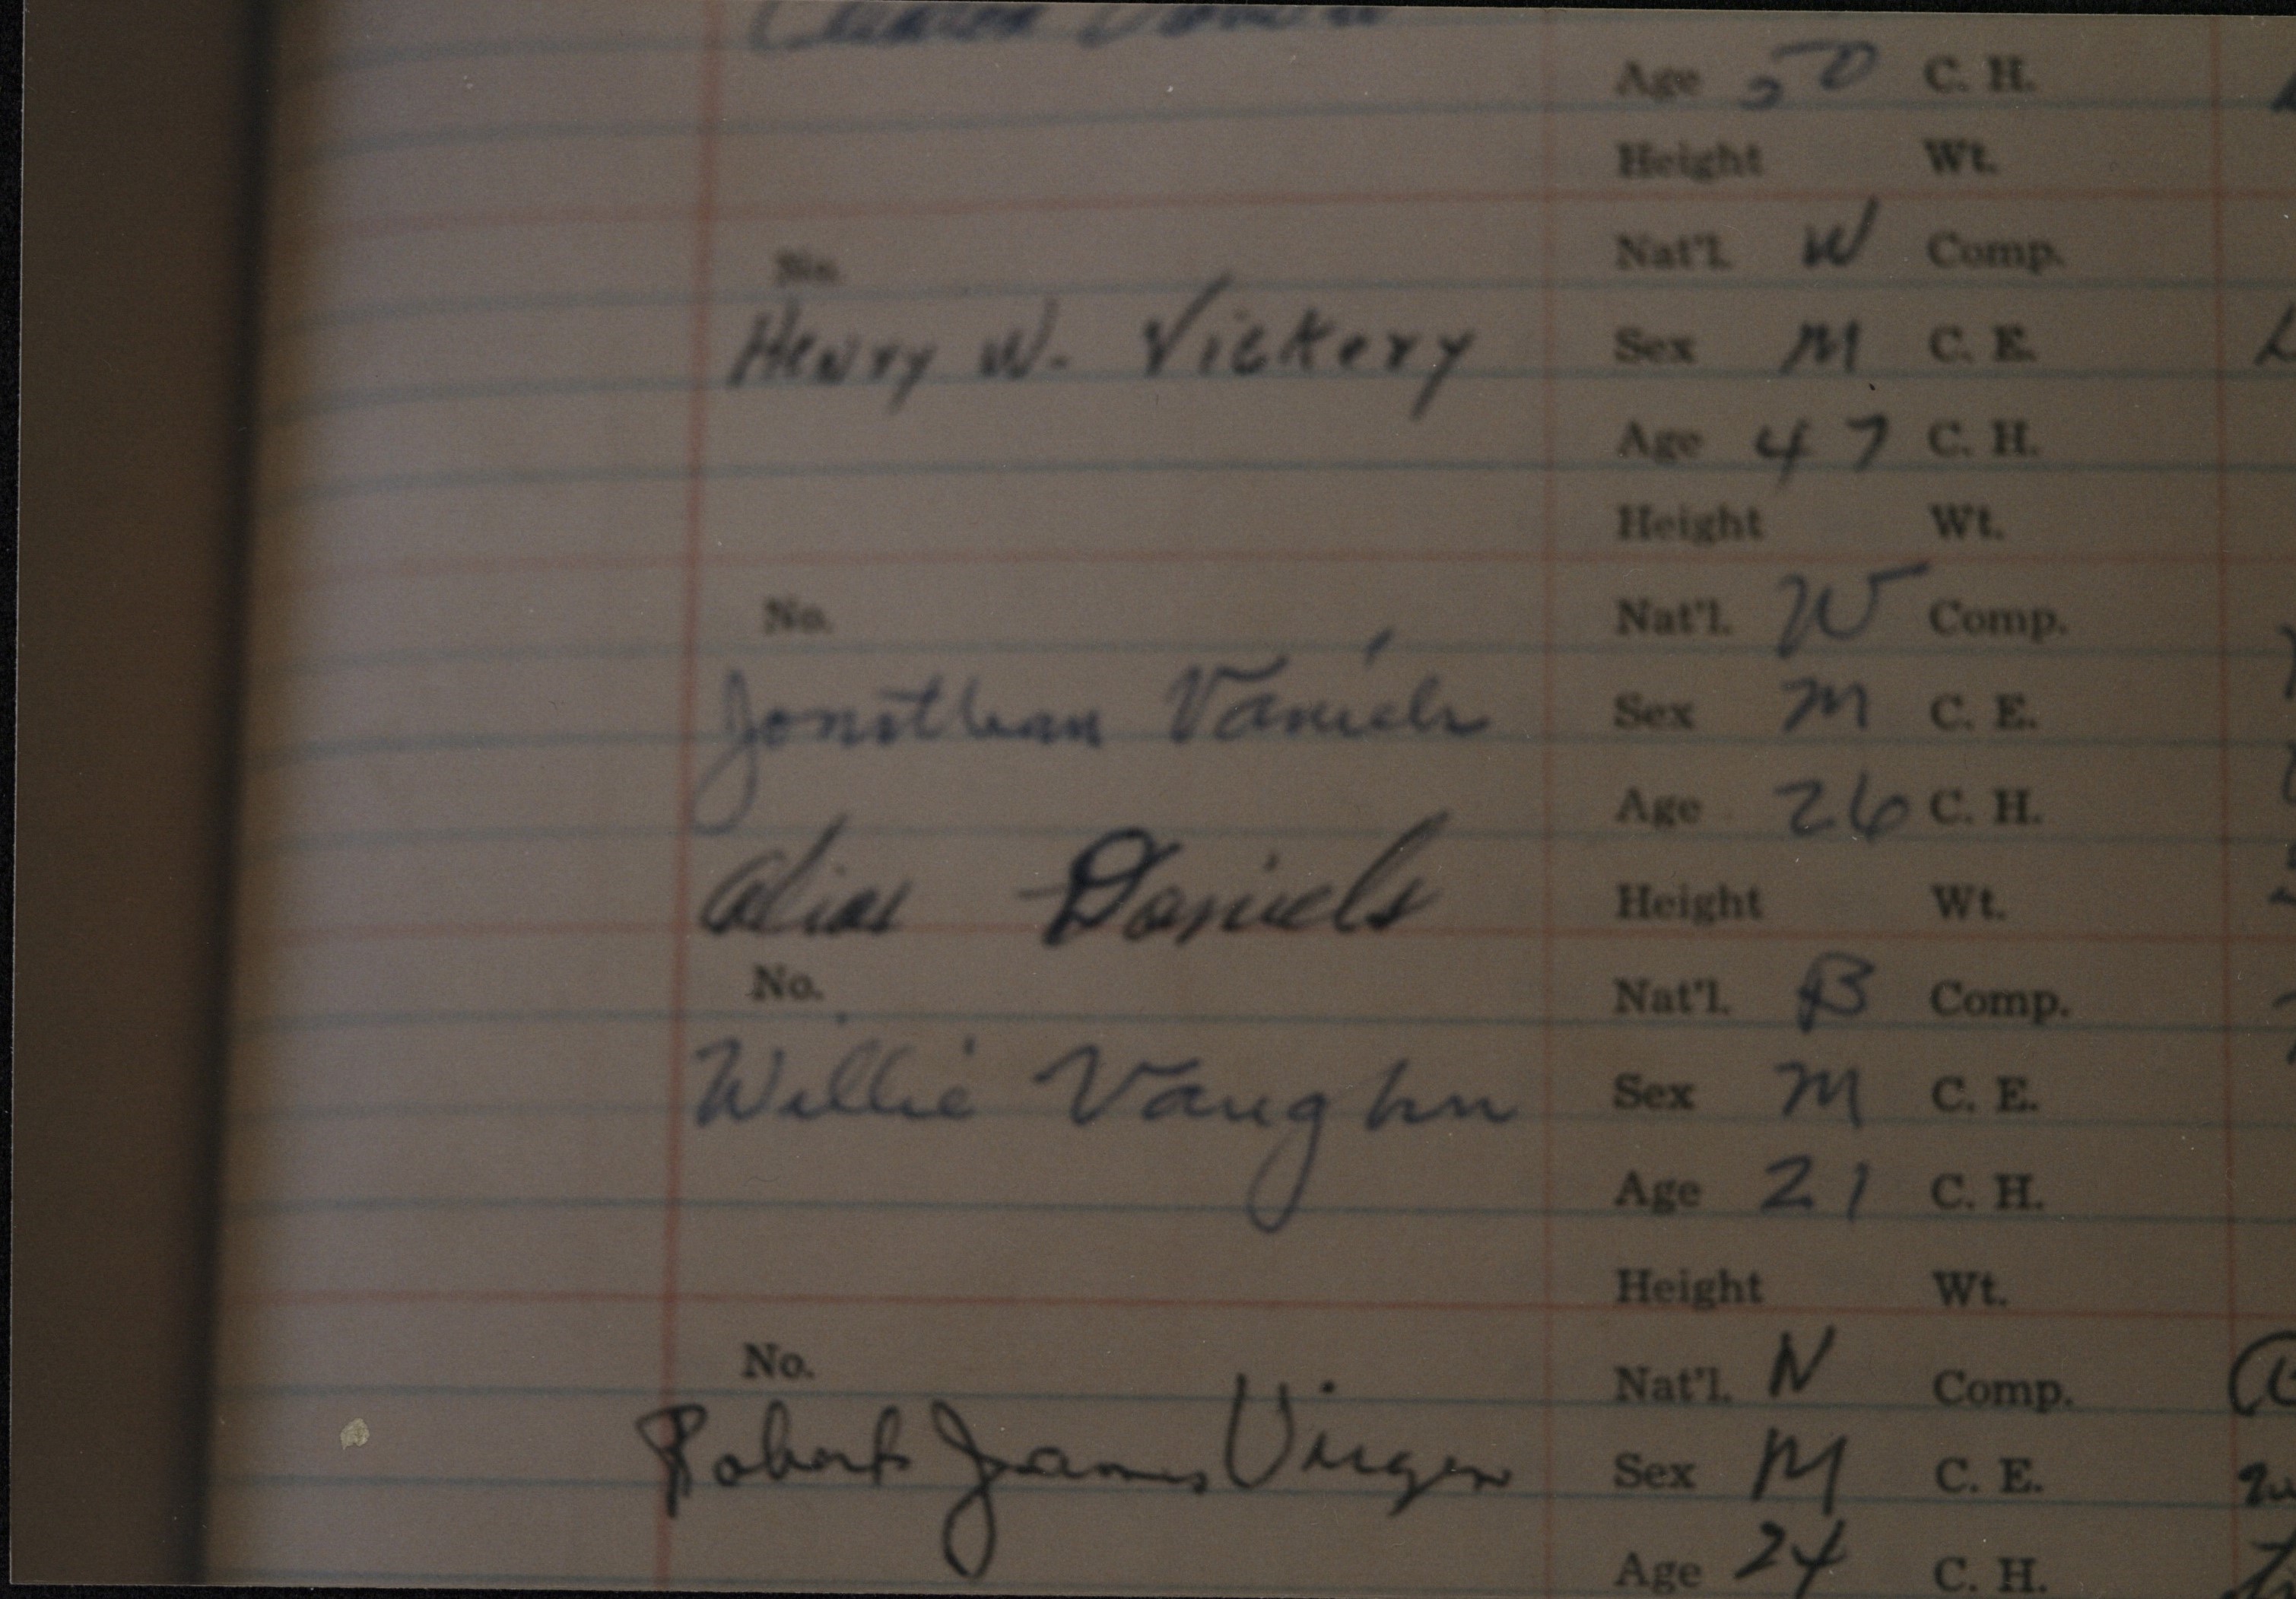 Age 50 C. H.
Height Wt.
No. Nat'l. W Comp.
Henry W. Vickery Sex M C. E.
Age 47 C. H.
Height Wt.
No. Nat'l. W Comp.
Jonathan Vaniels Sex M C. E.
Age 26 C. H.
alias Daniels Height Wt.
No. Nat'l. B Comp.
Willie Vaughn Sex M C. E.
Age 21 C. H.
Height Wt.
No. Nat'l. N Comp.
Robert James Sex M C. E.
Age 24 C. H.